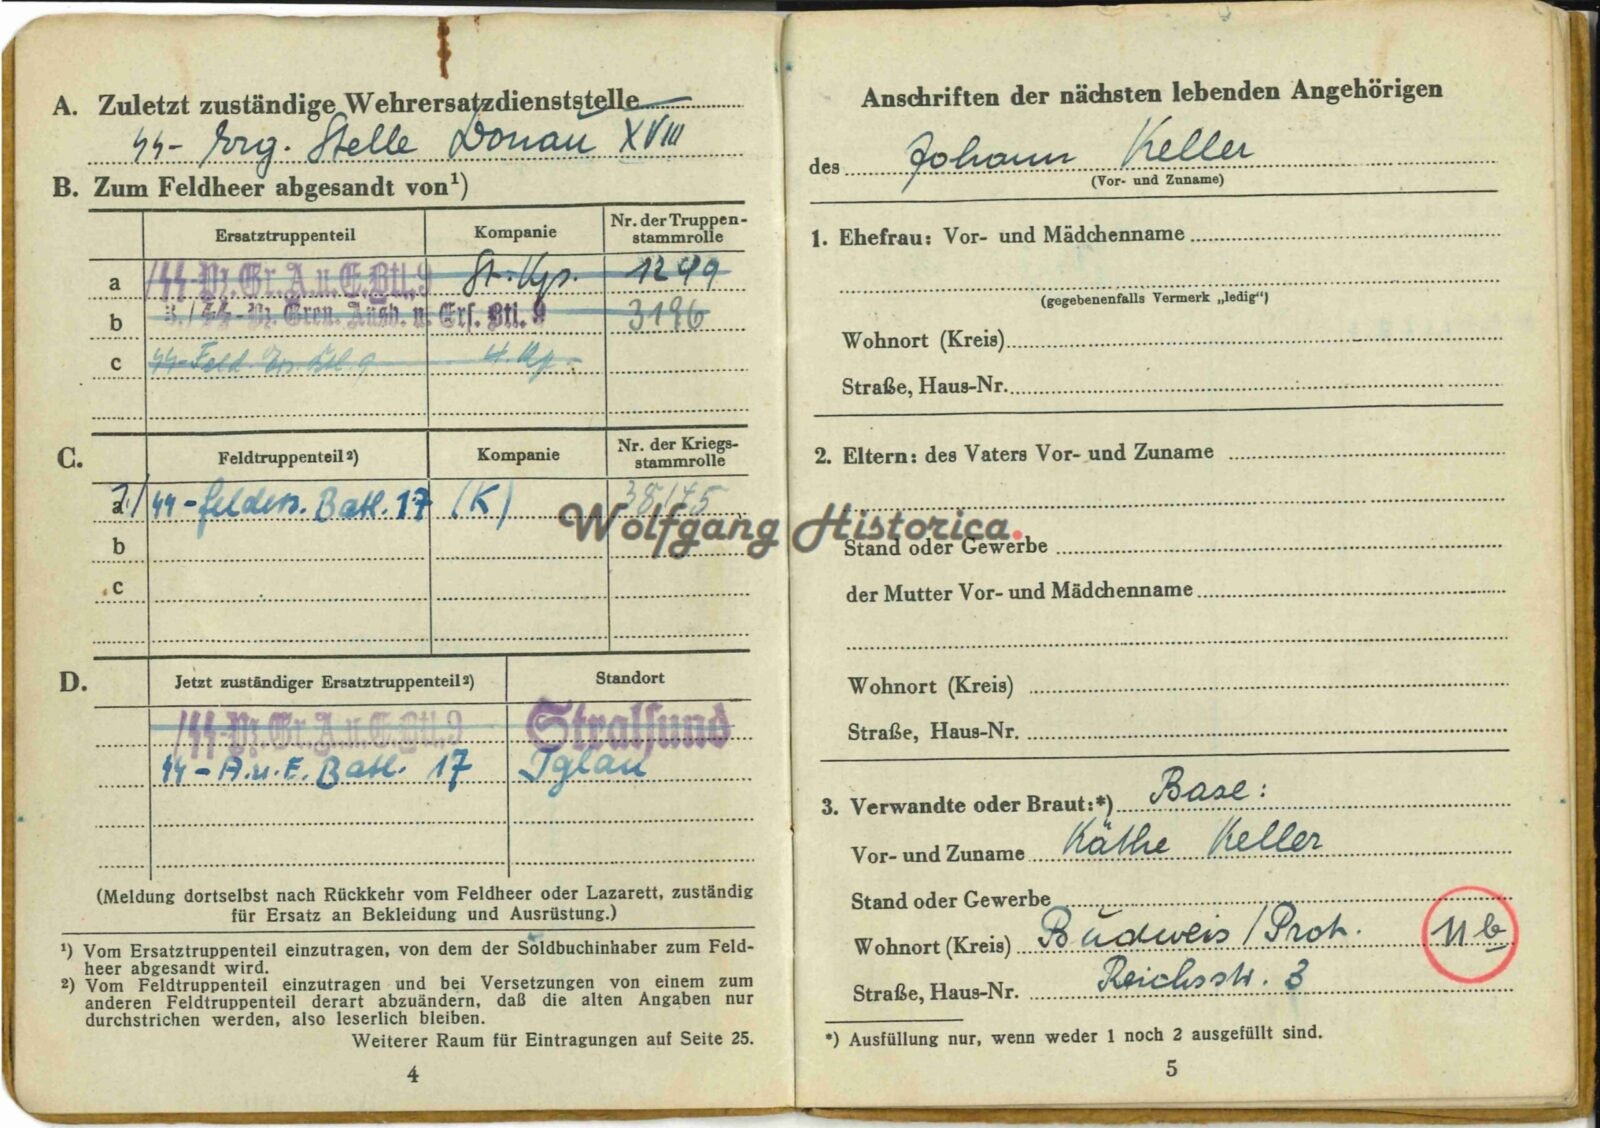 A. Zuletzt zuständige Wehrersatzdienststelle
SS- Erg. Stelle Donau XVIII
B. Zum Feldheer abgesandt von¹)
Ersatztruppenteil Kompanie Nr. der Truppen-
stammrolle
a /SS-Pz.Gr.A.u.E.Btl.9 St. Kp. 1299
b 3./SS-Pz. Gren. Ausb. u. Ers. Btl. 9 3196
c SS-Feld. Ers. Btl. 9 4. Kp.
C. Feldtruppenteil²) Kompanie Nr. der Kriegs-
stammrolle
a SS-Felders. Batl. 17 (K)
b
c
D. Jetzt zuständiger Ersatztruppenteil²) Standort
/SS-Pz.Gr.A.u.E.Btl.9 Stralsund
SS-A.u.E. Batl. 17 Iglau
(Meldung dortselbst nach Rückkehr vom Feldheer oder Lazarett, zuständig
für Ersatz an Bekleidung und Ausrüstung.)
¹) Vom Ersatztruppenteil einzutragen, von dem der Soldbuchinhaber zum Feld-
heer abgesandt wird.
²) Vom Feldtruppenteil einzutragen und bei Versetzungen von einem zum
anderen Feldtruppenteil derart abzuändern, daß die alten Angaben nur
durchstrichen werden, also leserlich bleiben.
Weiterer Raum für Eintragungen auf Seite 25.
4
Wolfgang Historica.
Anschriften der nächsten lebenden Angehörigen
des Johann Keller
(Vor- und Zuname)
1. Ehefrau: Vor- und Mädchenname
(gegebenenfalls Vermerk „ledig“)
Wohnort (Kreis)
Straße, Haus-Nr.
2. Eltern: des Vaters Vor- und Zuname
Stand oder Gewerbe
der Mutter Vor- und Mädchenname
Wohnort (Kreis)
Straße, Haus-Nr.
3. Verwandte oder Braut:*) Base:
Vor- und Zuname Käthe Keller
Stand oder Gewerbe
Wohnort (Kreis) Budweis/Prot. 11b
Straße, Haus-Nr. Reichsstr. 3
*) Ausfüllung nur, wenn weder 1 noch 2 ausgefüllt sind.
5